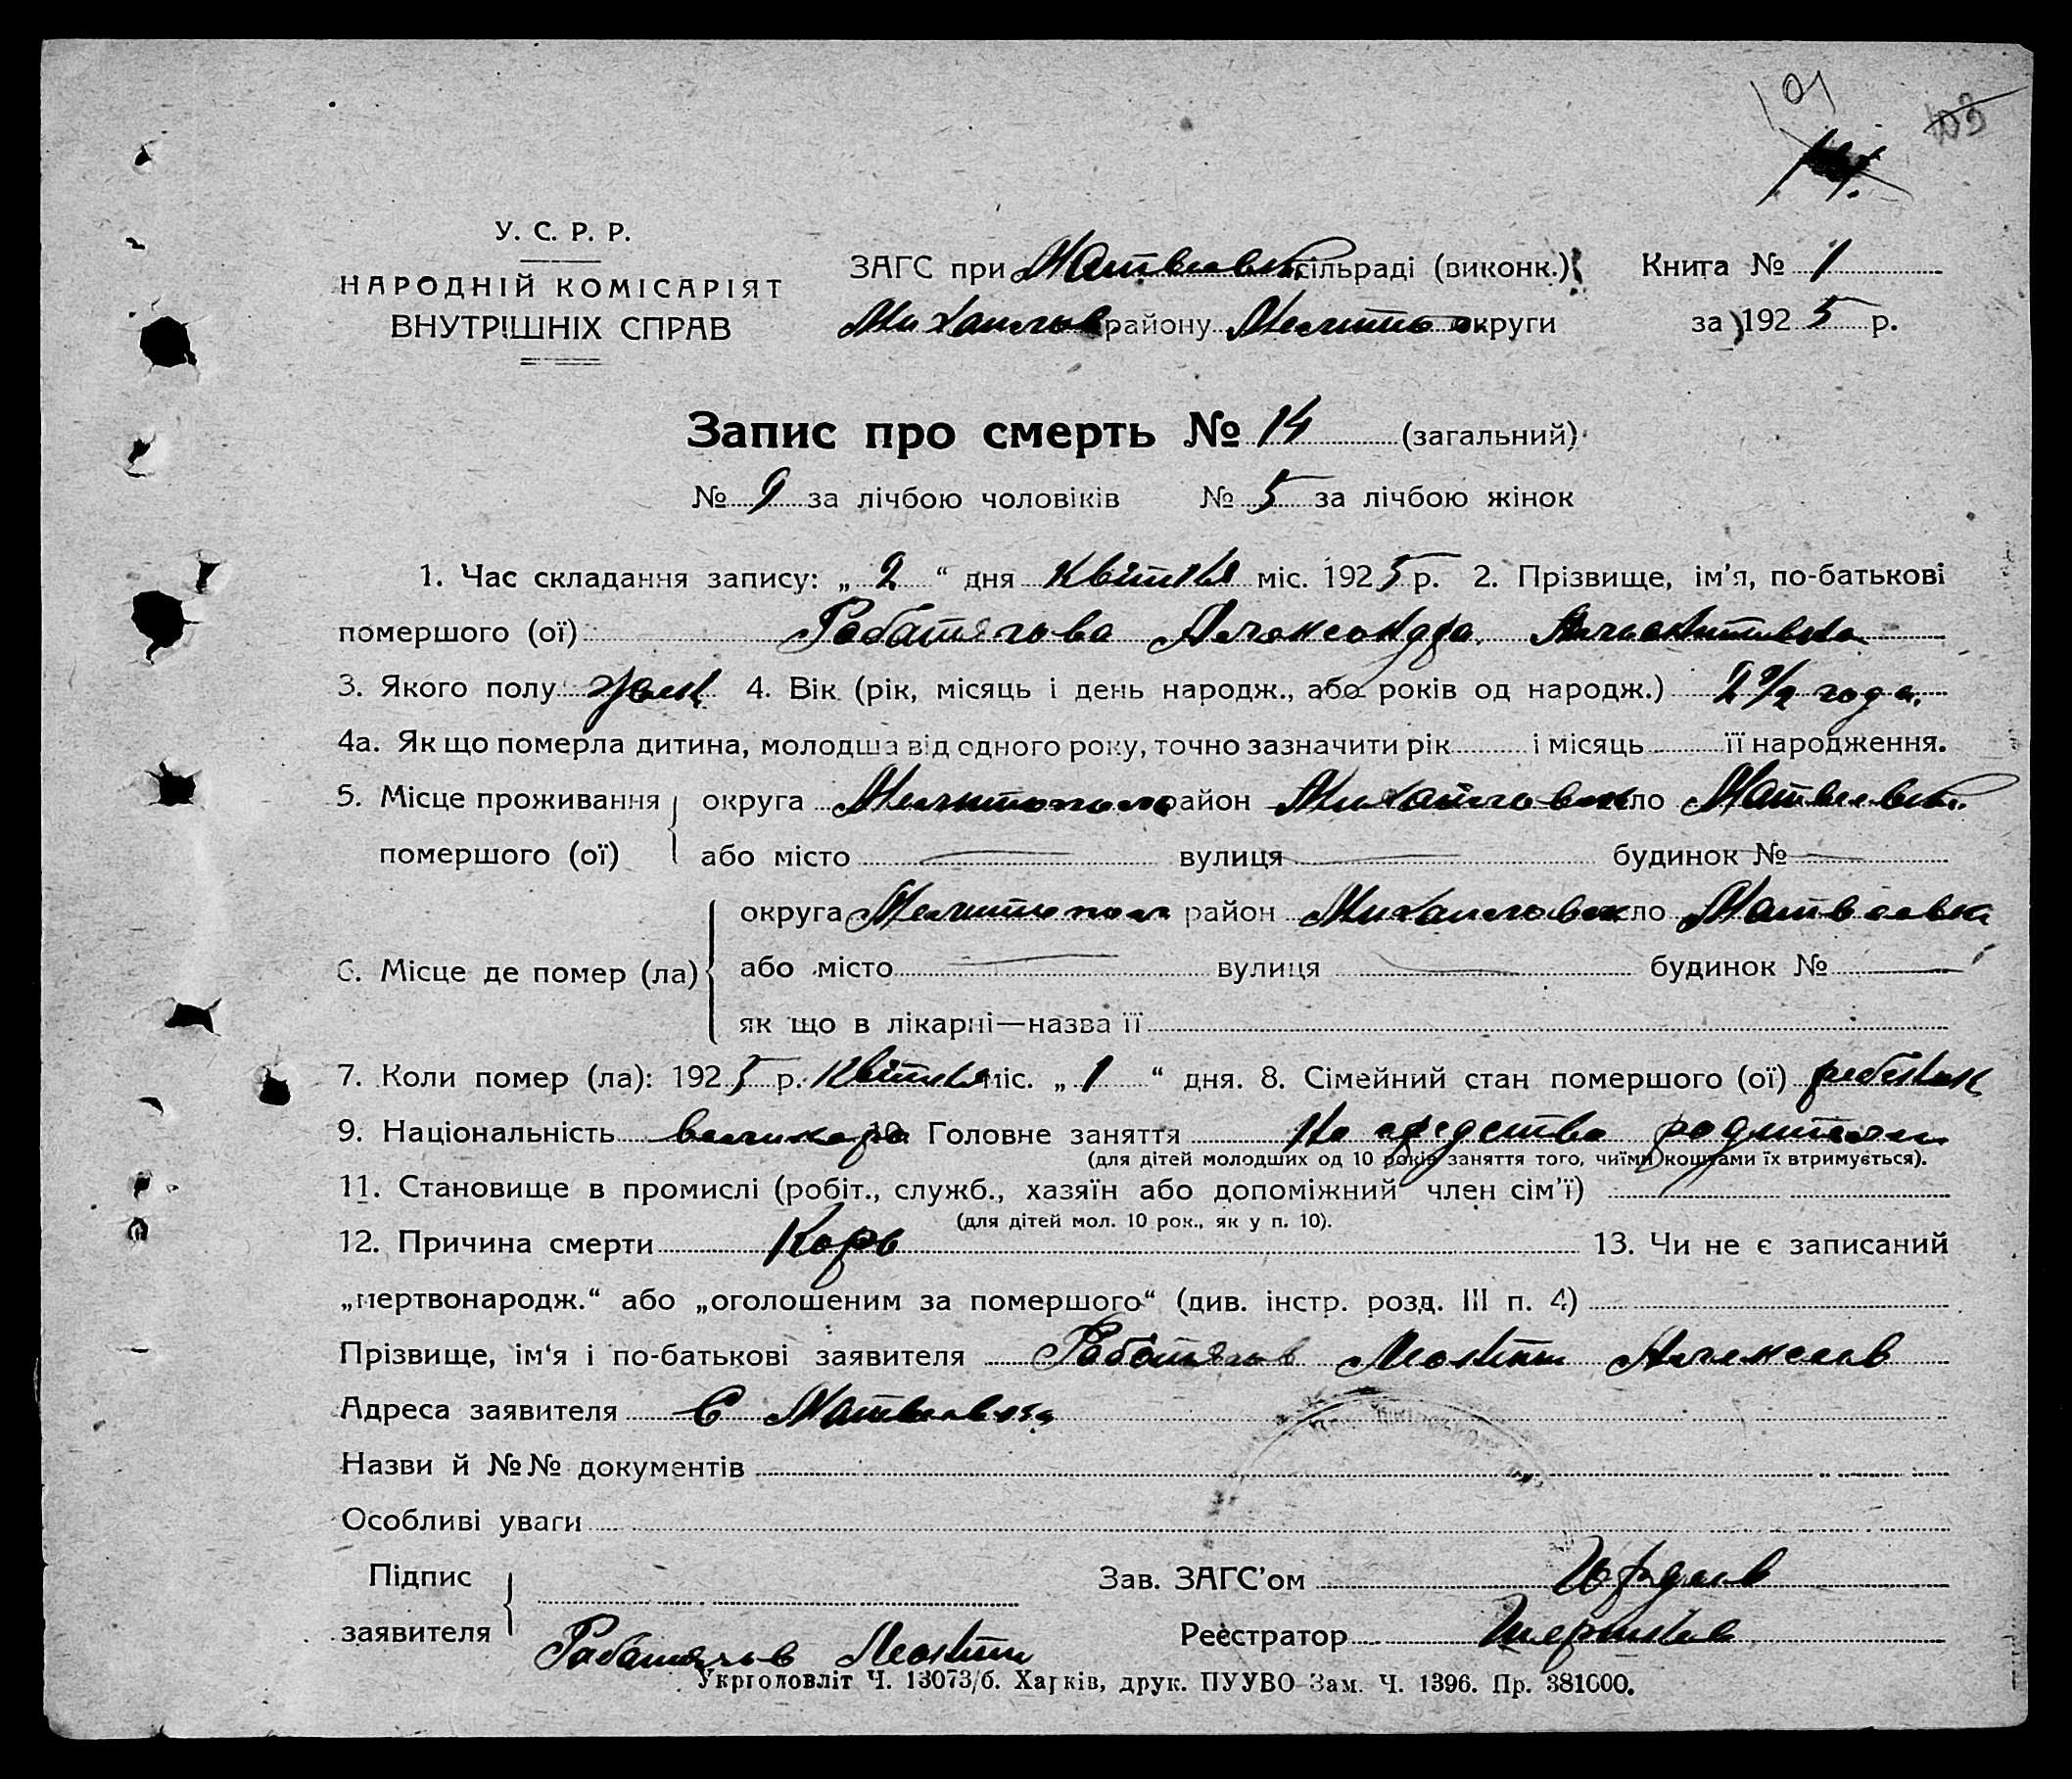 101
103
У. С. Р. Р.
НАРОДНІЙ КОМІСАРІЯТ
ВНУТРІШНІХ СПРАВ
ЗАГС при Матвеевск. сільраді (виконк.)
Книга № 1
Михайлов району Мелитоп округи
за 1925 р.
Запис про смерть № 14 (загальний)
№ 9 за лічбою чоловіків № 5 за лічбою жінок
1. Час складання запису: „ 2 “ дня квітня міс. 1925 р. 2. Прізвище, ім'я, по-батькові
помершого (ої) Александра
3. Якого полу жен. 4. Вік (рік, місяць і день народж., або років од народж.) 2 1/2 года.
4а. Як що померла дитина, молодша від одного року, точно зазначити рік і місяць її народження.
5. Місце проживання округа Мелитополь район Михайловск село Матвеевк.
помершого (ої) або місто вулиця будинок №
округа Мелитопол район Михайловск село Матвеевка
6. Місце де помер (ла) або місто вулиця будинок №
як що в лікарні—назва її
7. Коли помер (ла): 1925 р. квітня міс. „ 1 “ дня. 8. Сімейний стан помершого (ої) ребенок
9. Національність великор 10. Головне заняття На средства родителей
(для дітей молодших од 10 років заняття того, чиїми коштами їх втримується).
11. Становище в промислі (робіт., служб., хазяїн або допоміжний член сім'ї)
(для дітей мол. 10 рок., як у п. 10).
12. Причина смерти Корь 13. Чи не є записаний
„мертвонародж.“ або „оголошеним за помершого“ (див. інстр. розд. III п. 4)
Прізвище, ім'я і по-батькові заявителя Леонтий Алексеев
Адреса заявителя С Матвеевка
Назви й №№ документів
Особливі уваги
Підпис
заявителя
Леонтий
Зав. ЗАГС'ом
Реєстратор
Укрголовліт Ч. 13073/б. Харків, друк. ПУУВО Зам. Ч. 1396. Пр. 381000.